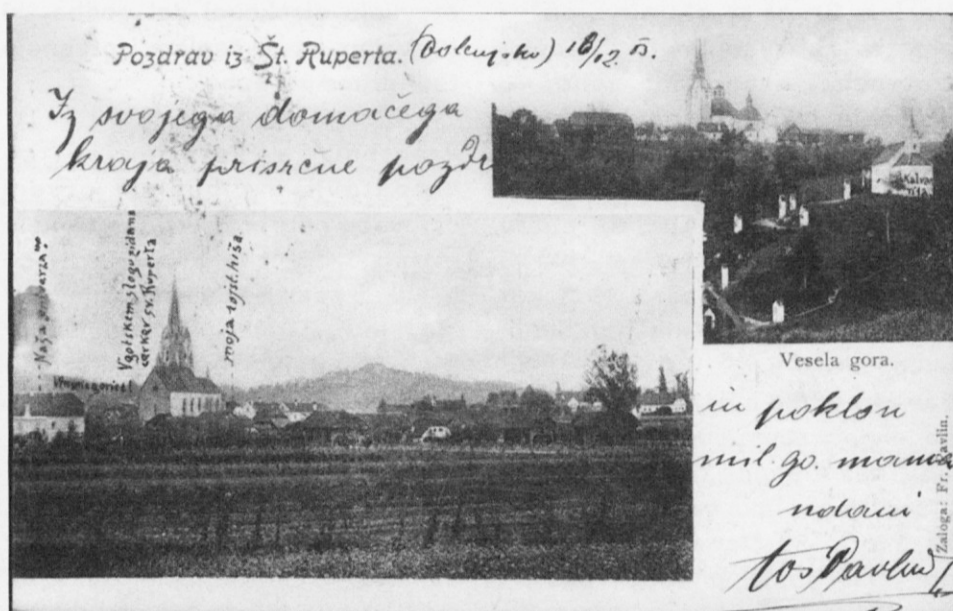 Pozdrav iz Št. Ruperta. (Dolenjsko)
Iz svojega domačega
kraja prisrčne pozdr
Kalva
rija
Naša
V gotskem slogu zidana
cerkev sv. Ruperta
moja rojst. hiša
Vesela gora.
in poklon
mil. go. mama
Pavlin
Zaloga: Fr. Pavlin.